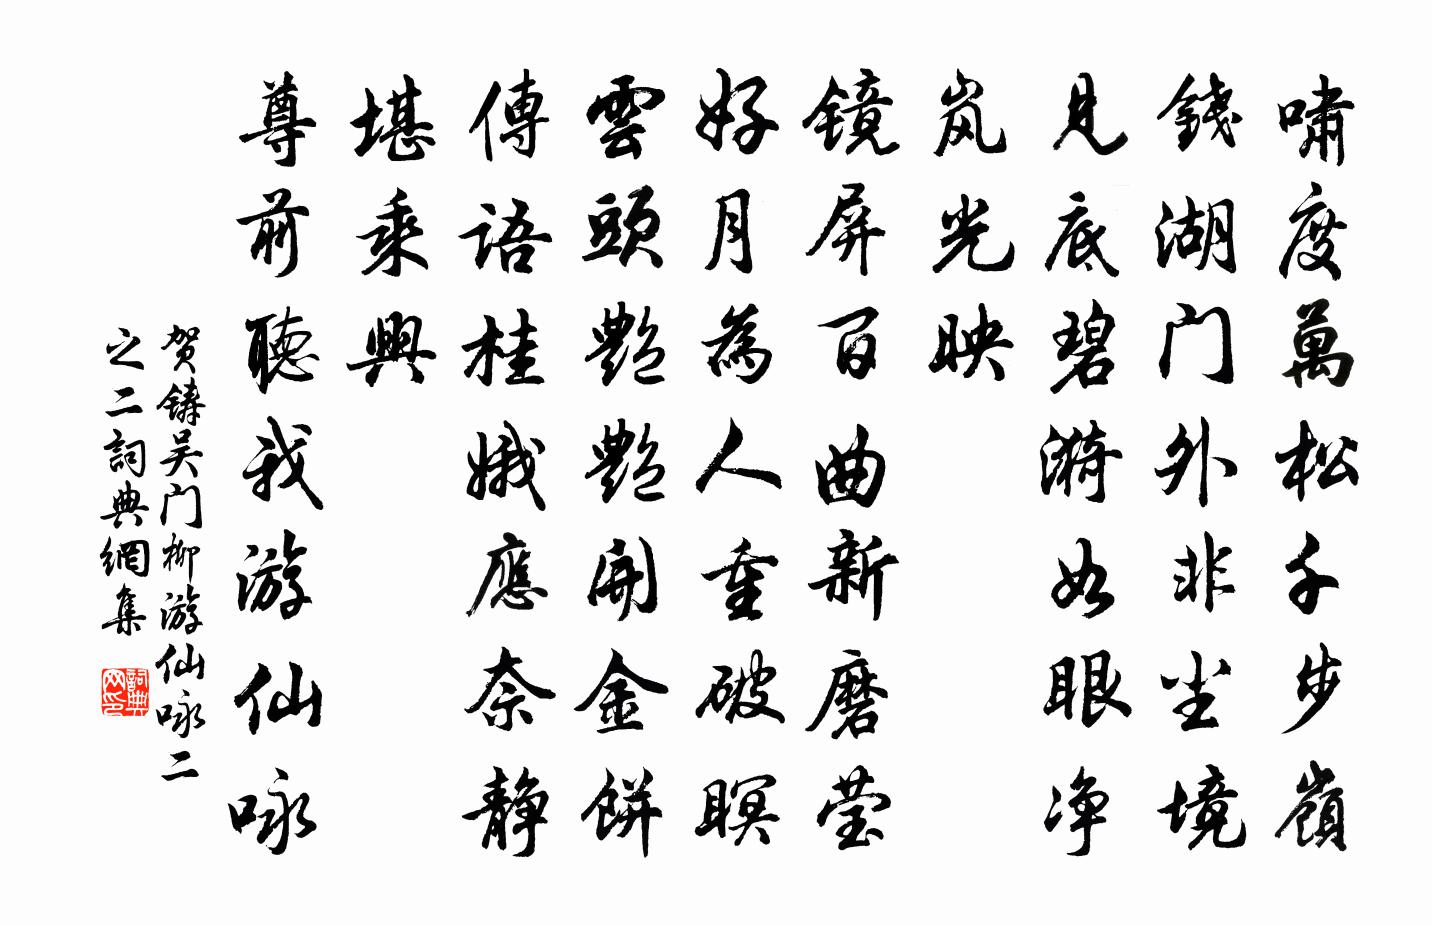 嘯度萬松千步嶺
錢湖门外非尘境
見底碧漪如眼净
岚光映
镜屏百曲新磨莹
好月為人重破暝
雲頭艷艷開金餅
傳語桂娥應奈静
堪乘興
尊前聽我游仙咏
贺鋳吴门柳游仙咏二
之二詞典網集
詞典网印